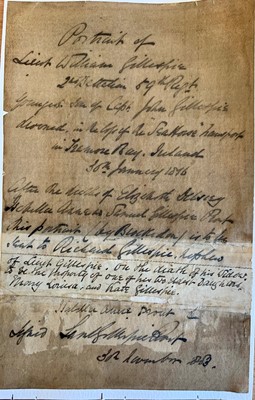 Portrait of
Lieut William Gillespie
2nd Battalion 59th Regt
Youngest Son of Capt John Gillespie
drowned, in the loss of the Seahorse Transport
in Tramore Bay. Ireland
30th January 1816
After the decease of Elizabeth
Samuel Gillespie Prout
this portrait, my Brother is to be
sent to Richard Gillespie. nephew
of Lieut Gillespie. On the death of his Widow,
to be the Property of one of his two Daughters,
Mary Louisa, and Kate Gillespie.
Prout
Signed Saml Gillespie Prout
30th November